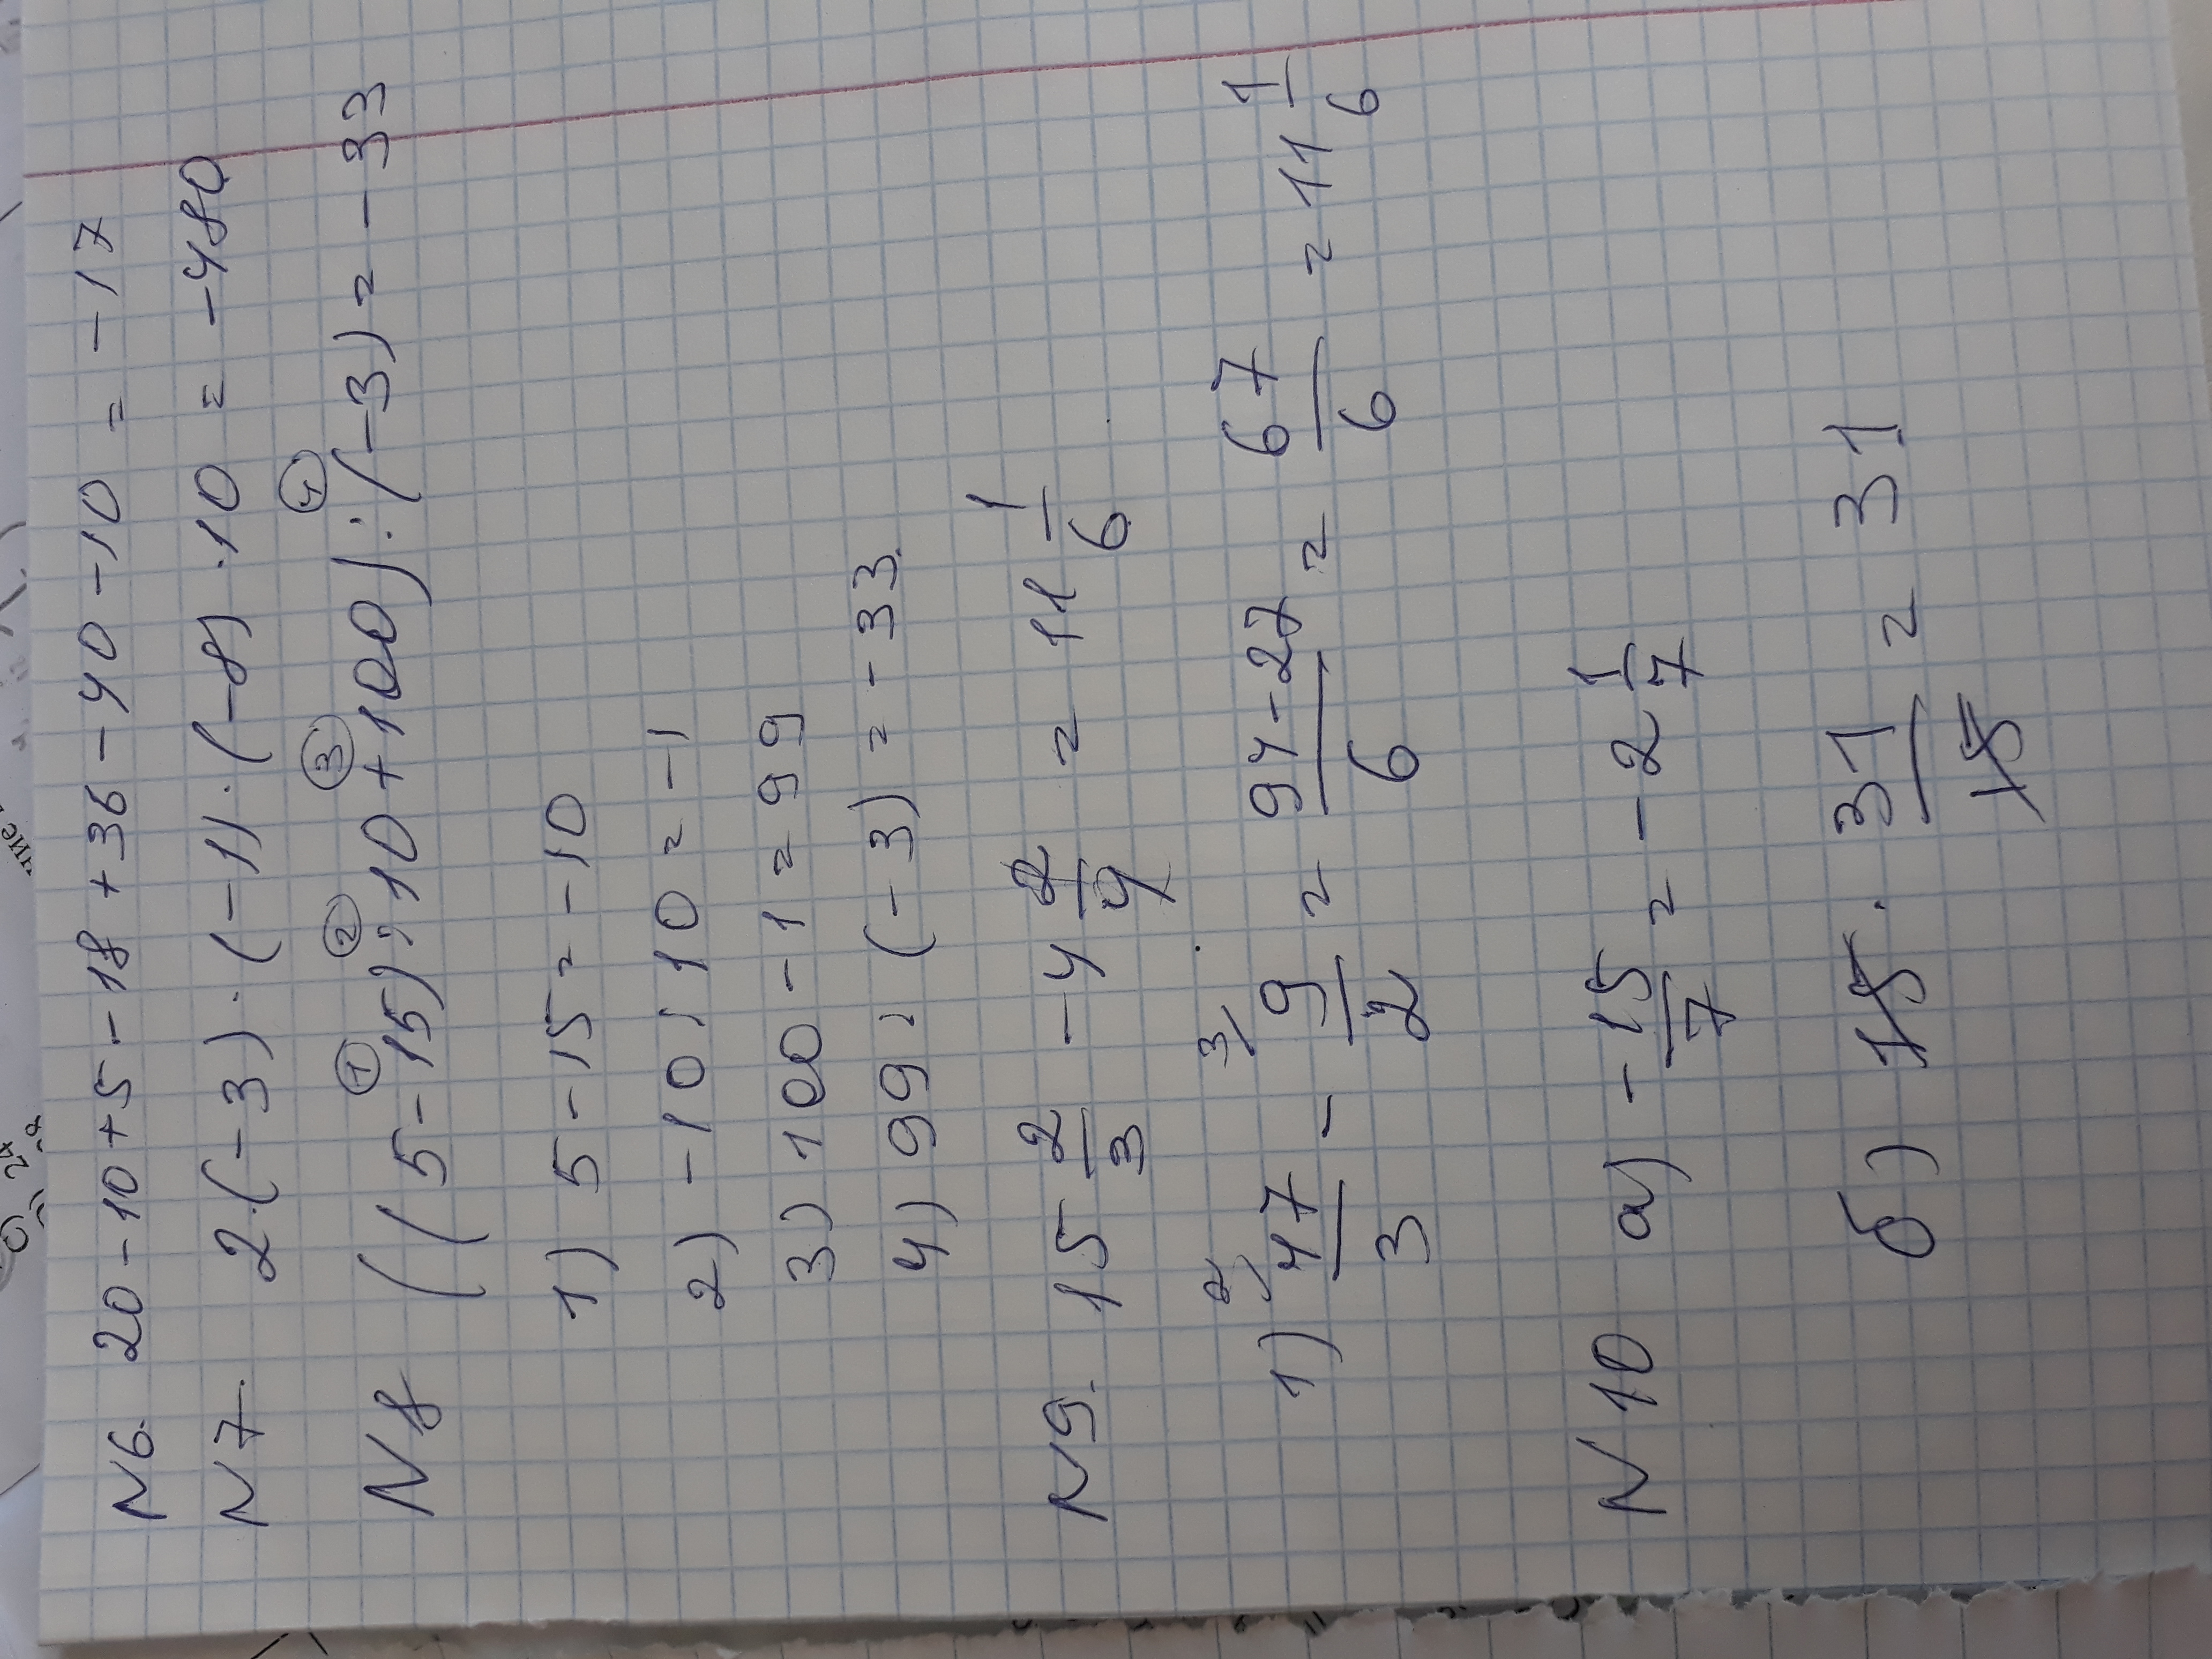 N6. 20-10+5-18+36-40-10 = -17
N7. 2·(-3)·(-1)·(-8)·10 = -480
N8 ((5-15):10+100):(-3) = -33
1) 5-15=-10
2) -10:10=-1
3) 100-1=99
4) 99:(-3)=-33.
N9. 15 2/3 - 4 2/4 = 11 1/6
1) 47/3 - 9/2 = 94-27/6 = 67/6 = 11 1/6
N10 а) -15/7 = -2 1/7
б) 15 · 31/15 = 31